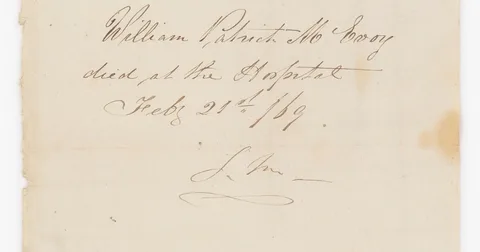 William Patrick McEvoy
died at the Hospital
Feby 21st /69
J. M